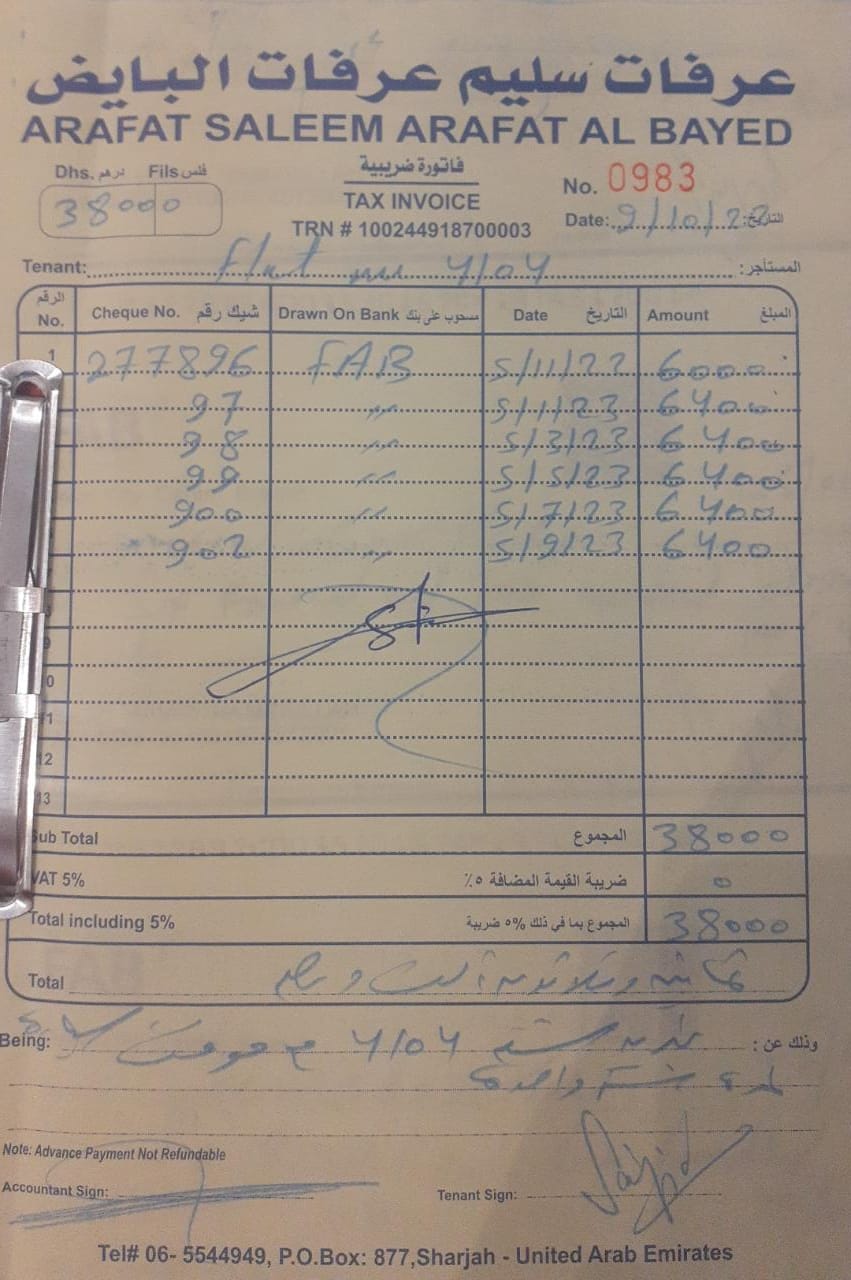 عرفات سليم عرفات البايض
ARAFAT SALEEM ARAFAT AL BAYED
Dhs. درهم Fils فلس
38000
فاتورة ضريبية
TAX INVOICE
TRN # 100244918700003
No. 0983
Date: 9/10/22 التاريخ:
Tenant: flat 4/04 المستأجر:
الرقم No. Cheque No. شيك رقم Drawn On Bank مسحوب على بنك Date التاريخ Amount المبلغ
1 277896 FAB 5/11/22 6000
97 〃 5/1/23 6400
98 〃 5/3/23 6400
99 〃 5/5/23 6400
900 〃 5/7/23 6400
902 〃 5/9/23 6400
12
13
Sub Total المجموع 38000
VAT 5% ضريبة القيمة المضافة ٥٪ 0
Total including 5% المجموع بما في ذلك ٥% ضريبة 38000
Total ثمانية وثلاثون ألف درهم
Being: 4/04 وذلك عن:
لمدة سنة واحدة
Note: Advance Payment Not Refundable
Accountant Sign:
Tenant Sign: Sajid
Tel# 06- 5544949, P.O.Box: 877,Sharjah - United Arab Emirates